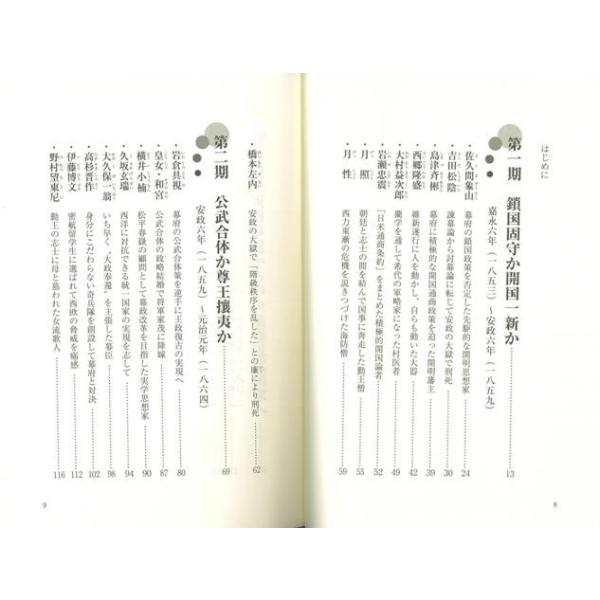 はじめに
第一期 鎖国固守か開国一新か……13
嘉永六年（一八五三）～安政六年（一八五九）
・佐久間象山 幕府の鎖国政策を否定した先駆的な開明思想家……24
・吉田松陰 諫幕論から討幕論に転じて安政の大獄で刑死……30
・島津斉彬 幕府に積極的な開国通商政策を迫った開明藩主……39
・西郷隆盛 維新遂行に人を動かし、自らも動いた大器……42
・大村益次郎 蘭学を通して希代の軍略家になった村医者……49
・岩瀬忠震 「日米通商条約」をまとめた積極的開国論者……52
・月照 朝廷と志士の間を結んで国事に奔走した勤王僧……55
・月性 西力東漸の危機を説きつづけた海防僧……59
8
・橋本左内 安政の大獄で「階級秩序を乱した」との廉により刑死……62
第二期 公武合体か尊王攘夷か……69
安政六年（一八五九）～元治元年（一八六四）
・岩倉具視 幕府の公武合体策を逆手に王政復古の実現へ……80
・皇女・和宮 公武合体の政略結婚で将軍家茂に降嫁……87
・横井小楠 松平春嶽の顧問として幕政改革を目指した実学思想家……90
・久坂玄瑞 西洋に対抗できる統一国家の実現を志して……94
・大久保一翁 いち早く“大政奉還”を主張した幕臣……98
・高杉晋作 身分にこだわらない奇兵隊を創設して幕府と対決……102
・伊藤博文 密航留学生に選ばれて西欧の脅威を痛感……112
・野村望東尼 勤王の志士に母と慕われた女流歌人……116
9